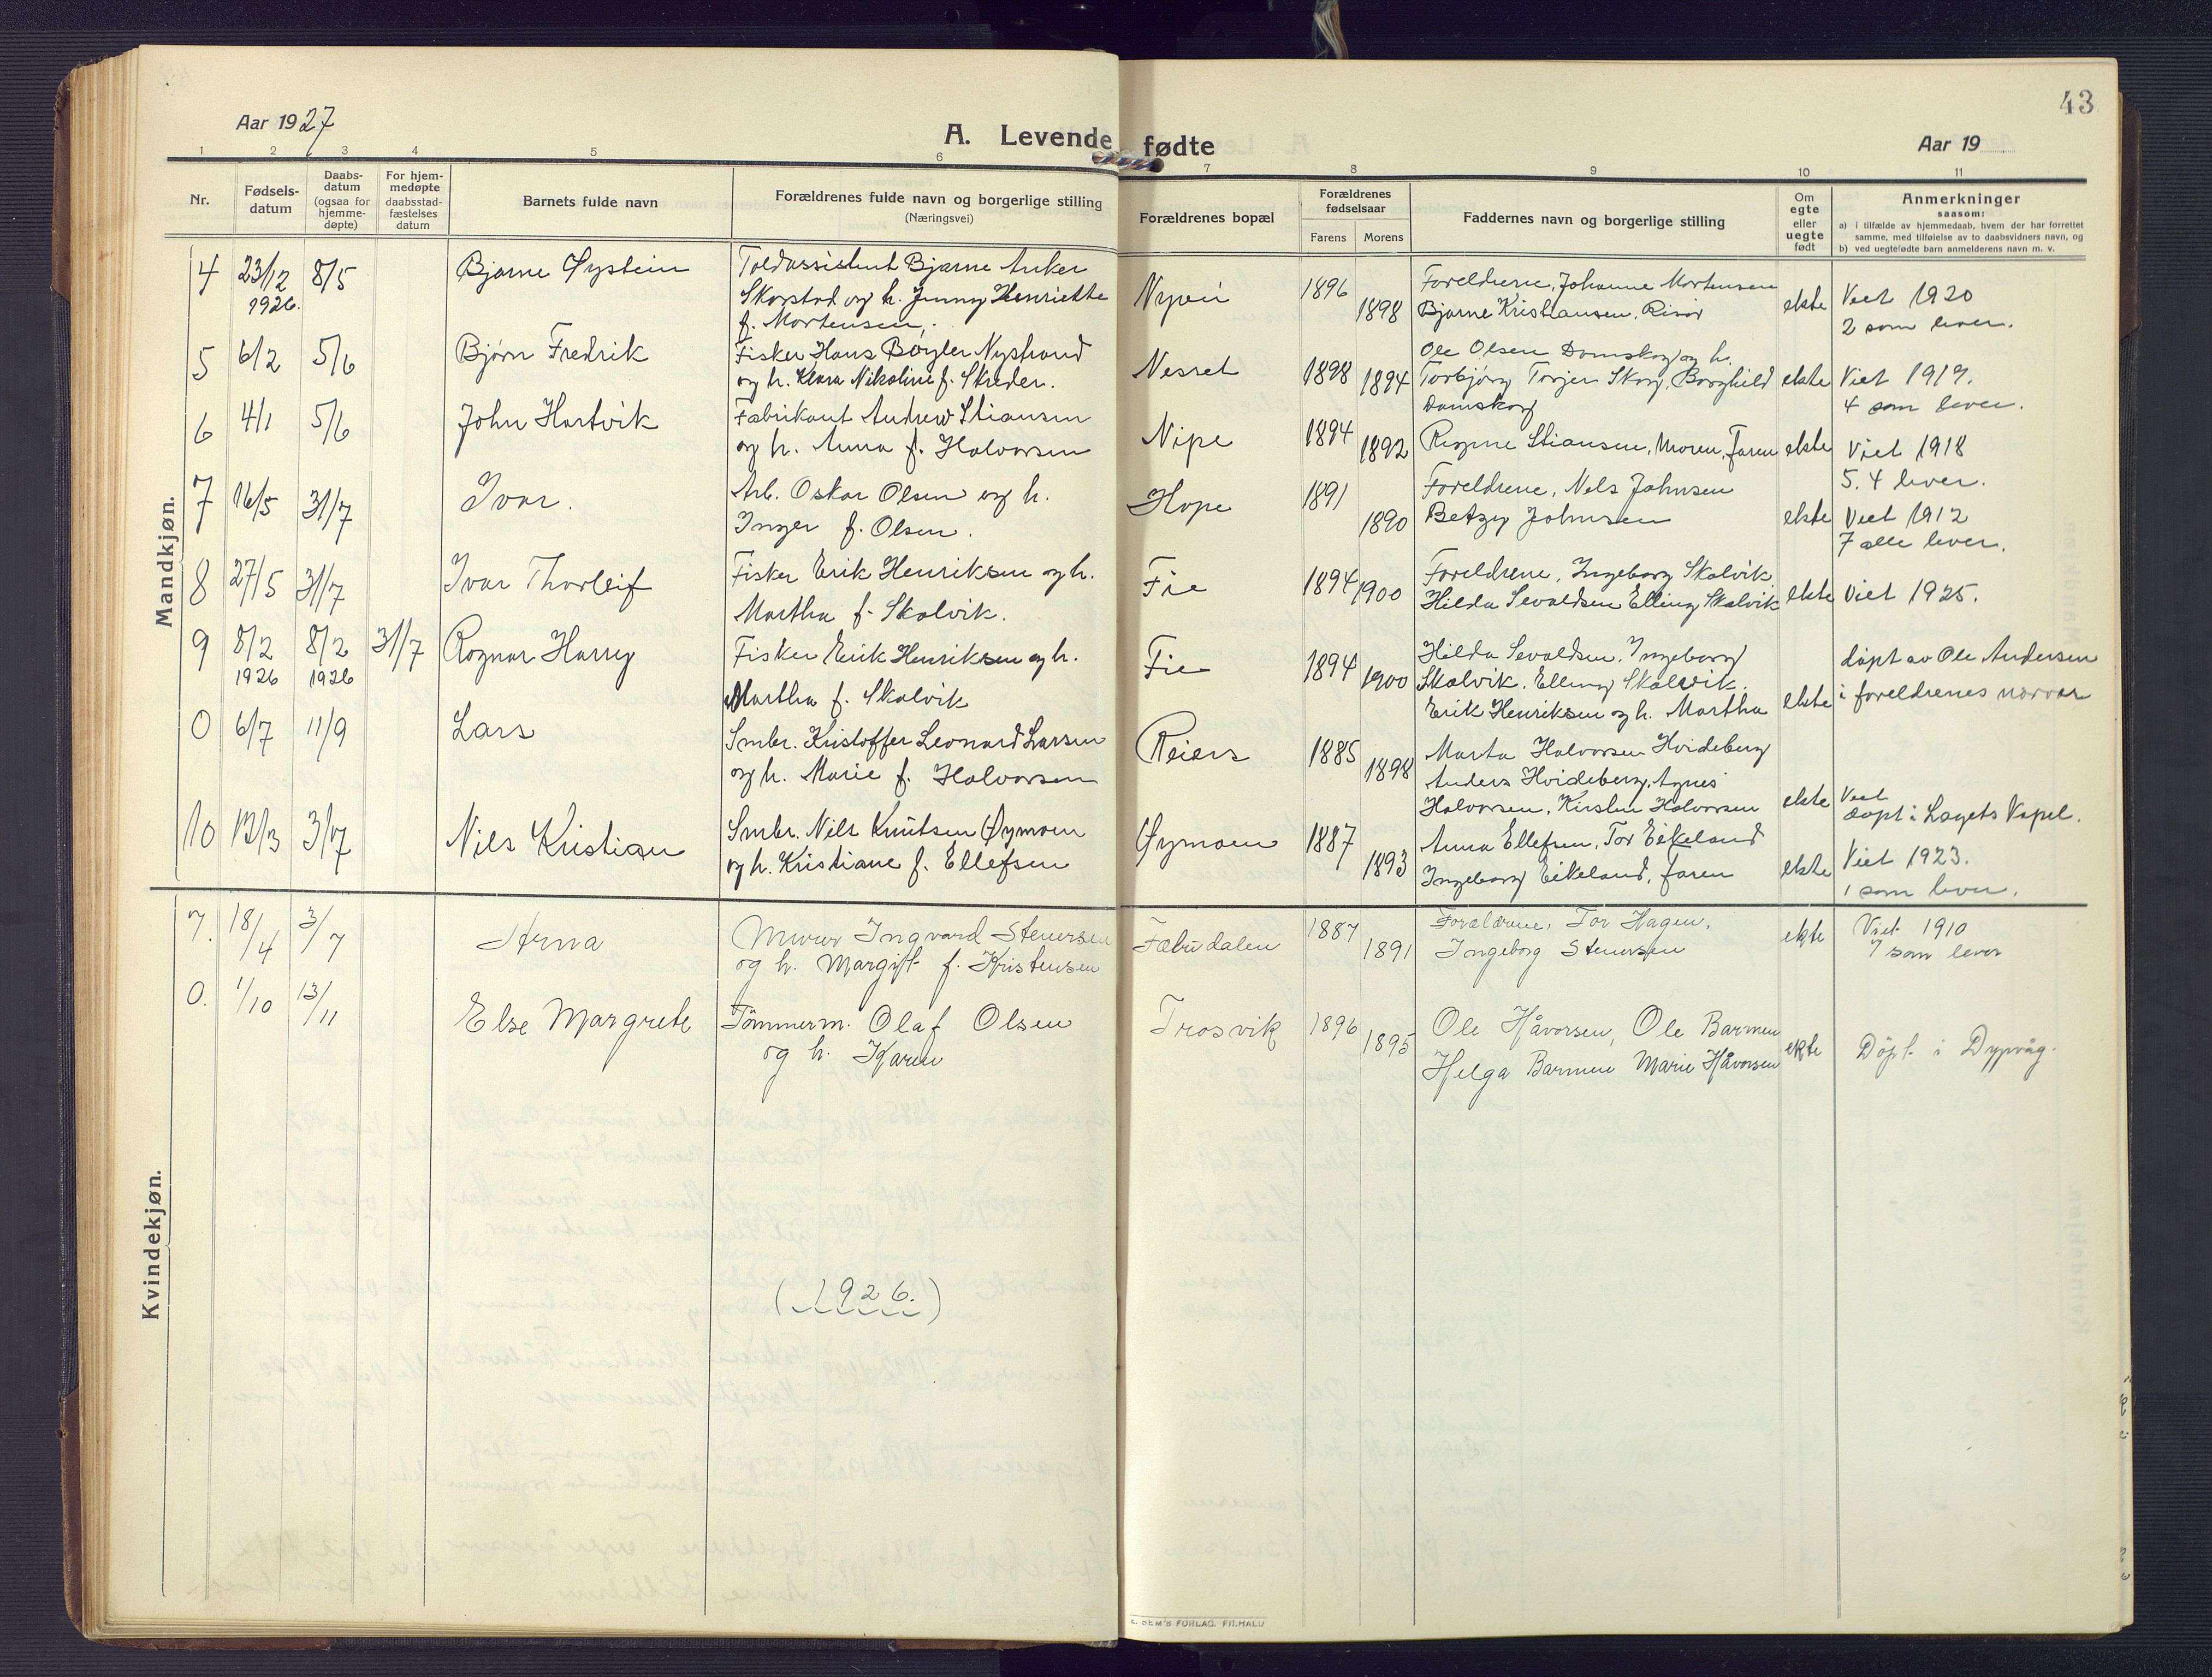 43
Aar 1927
A. Levende fødte
Aar 19
1 2 3 4 5 6 7 8 9 10 11
Nr.
Fødsels-
datum
Daabs-
datum
(ogsaa for
hjemme-
døpte)
For hjem-
medøpte
daabsstad-
fæstelses
datum
Barnets fulde navn
Forældrenes fulde navn og borgerlige stilling
(Næringsvei)
Forældrenes bopæl
Forældrenes
fødselsaar
Farens Morens
Faddernes navn og borgerlige stilling
Om
egte
eller
uegte
født
Anmerkninger
saasom:
a) i tilfælde av hjemmedaab, hvem der har forrettet
samme, med tilføielse av to daabsvidners navn, og
b) ved uegtefødte barn anmelderens navn m. v.
Mandkjøn.
4 23/12 8/5 Bjarne Øystein Toldassistent Bjarne Anker
1926.
Skarstad og h. Jenny Henriette
f. Mortensen.
Nyvei 1896 1898
Foreldrene, Johanne Mortensen
Bjarne Kristiansen, Risør
ekte Viet 1920
2 som lever.
5 6/2 5/6 Bjørn Fredrik Fisker Hans Bøyler Nystrand
og h. Klara Nikoline f. Skreder.
Nesret 1898 1894
Ole Olsen Damskog og h.
Torbjørg Torjer Skog, Borghild
Damskog
ekte Viet 1919.
4 som lever.
6 4/1 5/6 John Hartvik Fabrikant Andrew Stiansen
og h. Anna f. Halvorsen
Nipe 1894 1892 Ragne Stiansen, Moren, Faren ekte Viet 1918
5. 4 lever.
7 16/5 31/7 Ivar. Arb. Oskar Olsen og h.
Inger f. Olsen.
Hope 1891 1890
Foreldrene, Nels Johnsen
Betzy Johnsen
ekte Viet 1912
7 alle lever.
8 27/5 31/7 Ivar Thorleif Fisker Erik Henriksen og h.
Martha f. Skalvik.
Fie 1894 1900
Foreldrene, Ingeborg Skalvik.
Hilda Sevaldsen Elling Skalvik
ekte Viet 1925.
9 8/2 8/2 31/7 Ragnar Harry Fisker Erik Henriksen og h.
1926 1926
Martha f. Skalvik
Fie 1894 1900
Hilda Sevaldsen, Ingeborg
Skalvik. Elling Skalvik.
Erik Henriksen og h. Martha
ekte
døpt av Ole Andersen
i foreldrenes nærvær
0 6/7 11/9 Lars Smbr. Kristoffer Leonard Larsen
og h. Marie f. Halvorsen
Reiers 1885 1898
Marta Halvorsen Hvideberg
Anders Hvideberg, Agnes
Halvorsen, Kirsten Halvorsen
ekte Viet
døpt i Lagets Kapel.
10 13/3 3/7 Nils Kristian Smbr. Nils Knutsen Øymoen
og h. Kristiane f. Ellefsen
Øymoen 1887 1893
Anna Ellefsen, Tor Eikeland
Ingeborg Eikeland, faren
ekte Viet 1923.
1 som lever.
Kvindekjøn.
7. 18/4 3/7 Arna Murer Ingvard Stenersen
og h. Margit f. Kristensen
Fæbudalen 1887 1891
Forældrene, Tor Hagen,
Ingeborg Stenersen
ekte Viet 1910
7 som lever
0. 1/10 13/11 Else Margrete Tømmerm. Olaf Olsen
og h. Karen
Trosvik 1896 1895
Ole Håvorsen, Ole Barmen
Helga Barmen Marie Håvorsen
ekte Døpt i Dypvåg.
(1926.)